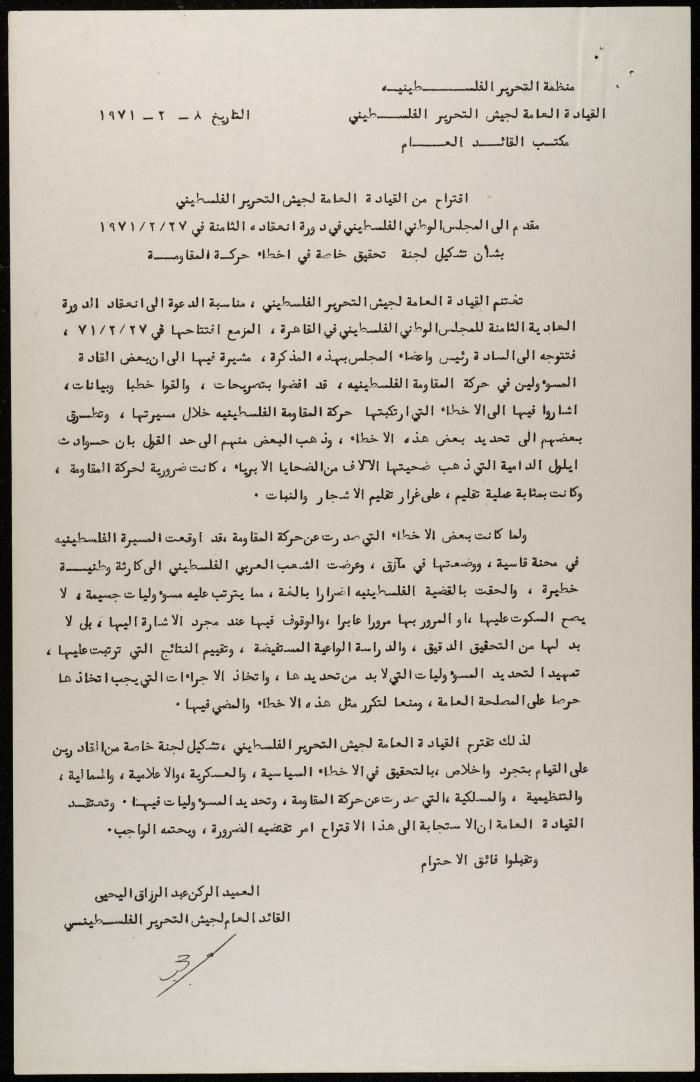 منظمة التحرير الفلسـطينيـه
القيادة العامة لجيش التحرير الفلسـطيني
التاريخ ٨ - ٢ - ١٩٧١
مكتب القائد العام
اقتراح من القيادة العامة لجيش التحرير الفلسطيني
مقدم الى المجلس الوطني الفلسطيني في دورة انعقاده الثامنة في ١٩٧١/٢/٢٧
بشأن تشكيل لجنة تحقيق خاصة في اخطاء حركة المقاومـة
تغتنم القيادة العامة لجيش التحرير الفلسطيني ، مناسبة الدعوة الى انعقاد الدورة
العادية الثامنة للمجلس الوطني الفلسطيني في القاهرة ، المزمع افتتاحها في ٧١/٢/٢٧ ،
فتتوجه الى السادة رئيس واعضاء المجلس بهذه المذكرة ، مشيرة فيها الى ان بعض القادة
المسؤولين في حركة المقاومة الفلسطينيه ، قد افضوا بتصريحات ، والقوا خطبا وبيانات ،
اشاروا فيها الى الاخطاء التي ارتكبتها حركة المقاومة الفلسطينيه خلال مسيرتها ، وتطـرق
بعضهم الى تحديد بعض هذه الاخطاء ، وذهب البعض منهم الى حد القول بان حـوادث
ايلول الدامية التي ذهب ضحيتها الآلاف من الضحايا الابرياء ، كانت ضرورية لحركة المقاومة ،
وكانت بمثابة عملية تقليم ، على غرار تقليم الاشجار والنبات ٠
ولما كانت بعض الاخطاء التي صدرت عن حركة المقاومة ، قد اوقعت المسيرة الفلسطينيه
في محنة قاسية ، ووضعتها في مآزق ، وعرضت الشعب العربي الفلسطيني الى كارثة وطنيـة
خطيرة ، والحقت بالقضية الفلسطينيه اضرارا بالغة ، مما يترتب عليه مسؤوليات جسيمة ، لا
يصح السكوت عليها ، او المرور بها مرورا عابرا ، والوقوف فيها عند مجرد الاشارة اليها ، بل لا
بد لها من التحقيق الدقيق ، والدراسة الواعية المستفيضة ، وتقييم النتائج التي ترتبت عليها ،
تمهيدا لتحديد المسؤوليات التي لابد من تحديدها ، واتخاذ الاجراءات التي يجب اتخاذها
حرصا على المصلحة العامة ، ومنعا لتكرر مثل هذه الاخطاء والمضي فيها ٠
لذلك تقترح القيادة العامة لجيش التحرير الفلسطيني ، تشكيل لجنة خاصة من القادرين
على القيام بتجرد واخلاص ، بالتحقيق في الاخطاء السياسية ، والعسكرية ، والاعلامية ، والمالية ،
والتنظيمية ، والمسلكية ، التي صدرت عن حركة المقاومة ، وتحديد المسؤوليات فيهـا ٠ وتعتقـد
القيادة العامة ان الاستجابة الى هذا الاقتراح امر تقتضيه الضرورة ، ويحتمه الواجب ٠
وتقبلوا فائق الاحترام
العميد الركن عبد الرزاق اليحيى
القائد العام لجيش التحرير الفلسـطينـي